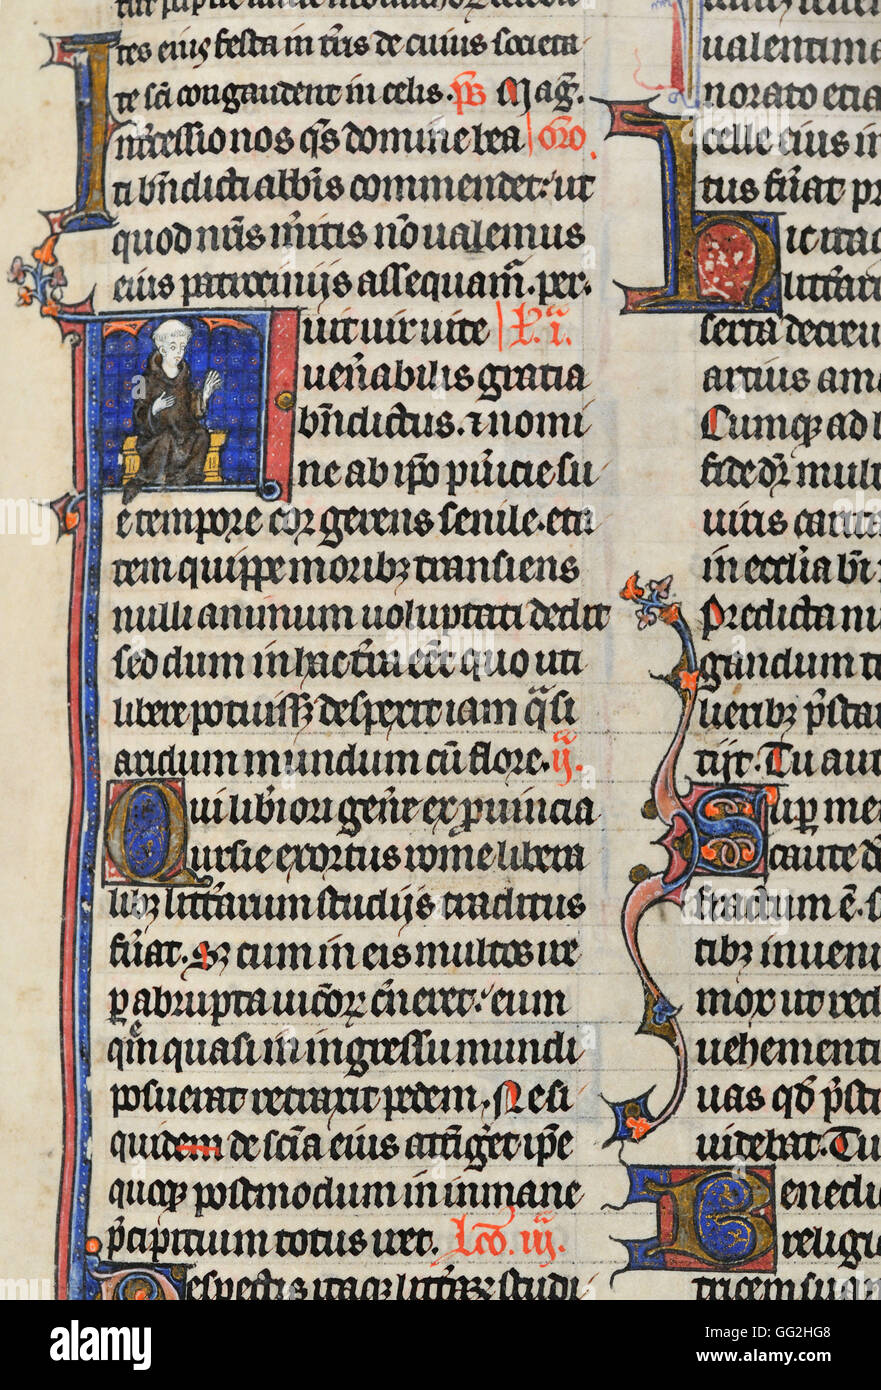 tes eius festa in t̄ris de cuius societa
te sc̄i congaudent in celis. ps̄ Mag̅.
Int̄cessio nos qs̄ domine bea or̄o.
ti bn̄dicti abb̄is commendet: ut
quod nr̄is m̄itis nō ualemus
eius patrocinijs assequam̄. per.
Fuit uir uite l̄. i.
uen̄abilis gratia
bn̄dictus. ⁊ nomi
ne ab ip̄o pu̅icie su
e tempore cor gerens senile. eta
tem quippe moribꝫ transiens
nulli animum uoluptati dedit
sed dum in hac t̄ra eēt quo uti
libere potuissꝫ despexit iam q̄si
aridum mundum cū flore. ij.
Qui libiori gen̄e ex prouincia
nursie exortus rome libera
libꝫ litt̄arum studijs traditus
fu̅at. Sꝫ cum in eis multos ire
ꝑ abrupta uicioꝝ c̄neret: eum
quē quasi in ingressu mundi
posuerat retraxit pedem. Ne si
quidem de sc̄ia eius atting̅et ip̄e
quoqꝫ postmodum in inmane
p̄cipitium totus iret. Lc̄o. iij.
Despectis itaqꝫ litt̄aꝝ studi
ualentima
norato etia
celle eius in
tus fu̅at pr
hic itaq
litt̄ari
serta decreu
artius ama
Cumqꝫ ad l
fide dꝝ mul
uiris carita
in eccl̄ia bī
Predicta nu
gandum tr
lieribꝫ p̄sta
tijt. Tu aut
Sup̲ me
caute d
fractum ē. s
tibꝫ inueni
mox ut red
uehementi
uas qd̄ p̄sti
uidebat. Tu
Benedic
religi
tricem suam
alamy
Image ID: GG2HG8
www.alamy.com